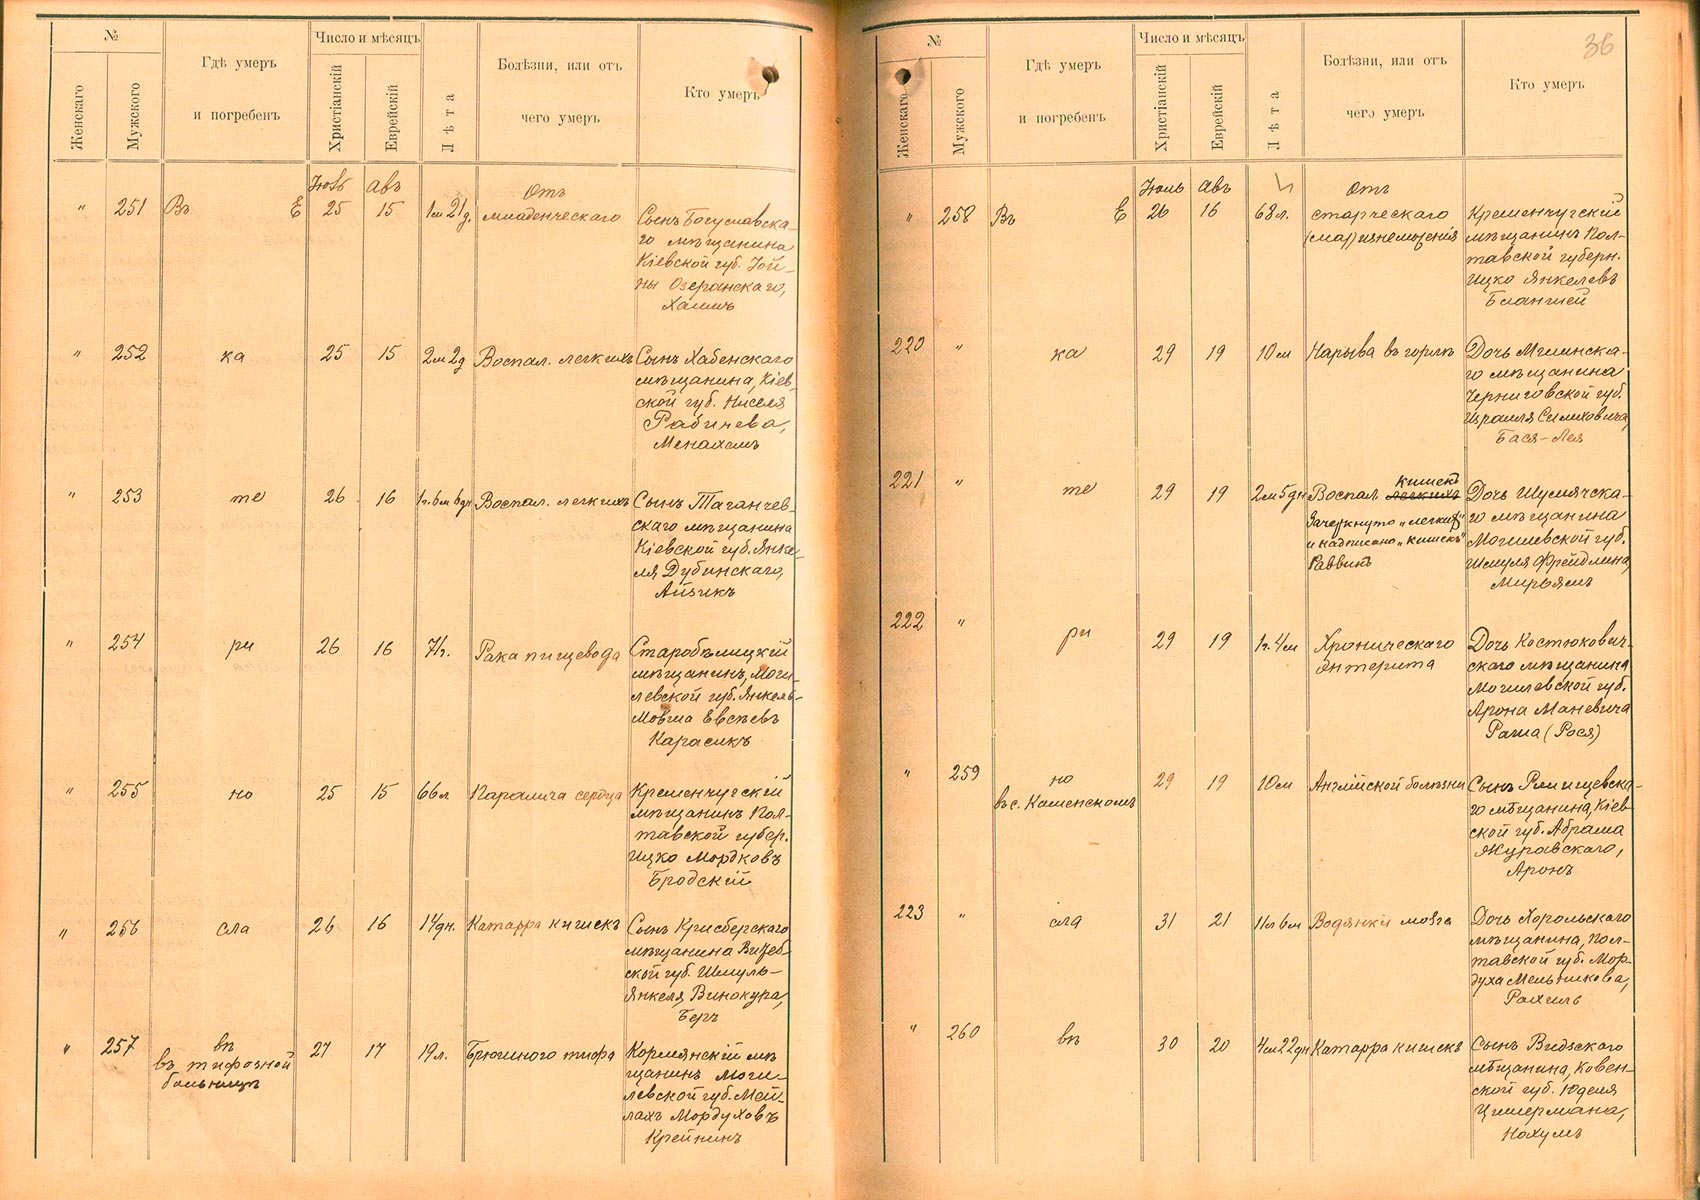 №
Женскаго
Мужского
Гдѣ умеръ
и погребенъ
Число и мѣсяцъ
Христіанскій
Еврейскій
Лѣта
Болѣзни, или отъ
чего умеръ
Кто умеръ
" 251
Въ Е
Іюль 25
Авъ 15
1м 21д.
Отъ
младенческаго
Сынъ Богуславска-
го мѣщанина
Кіевской губ. Іой-
ны Озерянскаго,
Хаимъ
" 252
ка
25
15
2м 2д
Воспал. легкихъ
Сынъ Хабенскаго
мѣщанина, Кіев-
ской губ. Киселя
Рабичева,
Менахемъ
" 253
те
26
16
1г. 6м 6дн
Воспал. легкихъ
Сынъ Таганчев-
скаго мѣщанина
Кіевской губ. Янке-
ля Дубинскаго,
Айзикъ
" 254
ри
26
16
71г.
Рака пищевода
Старобѣлицкій
мѣщанинъ, Моги-
левской губ. Янкель-
Мовша Евсѣевъ
Карасикъ
" 255
но
25
15
66л
Паралича сердца
Кременчугскій
мѣщанинъ Пол-
тавской губер.
Ицко Мордковъ
Бродскій
" 256
сла
26
16
14дн.
Катарра кишекъ
Сынъ Крисберскаго
мѣщанина Витеб-
ской губ. Шмуль-
Янкеля Винокура,
Беръ
" 257
вѣ
въ тифозной
больницѣ
27
17
19л.
Брюшного тифа
Кормянскій мѣ
щанинъ Моги
левской губ. Мей-
лахъ Мордуховъ
Крейнинъ
36
№
Женскаго
Мужского
Гдѣ умеръ
и погребенъ
Число и мѣсяцъ
Христіанскій
Еврейскій
Лѣта
Болѣзни, или отъ
чего умеръ
Кто умеръ
" 258
Въ Е
Іюль 26
Авъ 16
68л.
Отъ
старческаго
(мар) изнеможенія
Кременчугскій
мѣщанинъ Пол-
тавской губерн.
Ицко Янкелевъ
220 "
ка
29
19
10м
Нарыва въ горлѣ
Дочь Мглинска-
го мѣщанина
Черниговской губ.
Израиля Симховича,
Бася-Лея
221 "
те
29
19
2м 5дн
кишекъ
Воспал. легкихъ
Зачеркнуто „легкихъ"
и надписано „кишекъ"
Раввинъ
Дочь Шумячска-
го мѣщанина
Могилевской губ.
Шмуля Фрейдлина,
Мирьямъ
222 "
ри
29
19
1г. 4м
Хроническаго
энтерита
Дочь Костюкович-
скаго мѣщанина
Могилевской губ.
Арона Маневича
Раша (Рося)
" 259
но
въ с. Каменскомъ
29
19
10м
Англійской болѣзни
Сынъ Ржищевска-
го мѣщанина, Кіев-
ской губ. Абрама
Журавскаго,
Аронъ
223 "
сла
31
21
11л 6м
Водянки мозга
Дочь Хорольскаго
мѣщанина, Пол-
тавской губ. Мор-
духа Мельникова,
Рахиль
" 260
вѣ
30
20
4м 22дн
Катарра кишекъ
Сынъ Видзскаго
мѣщанина, Ковен-
ской губ. Юделя
Цимермана,
Нохумъ